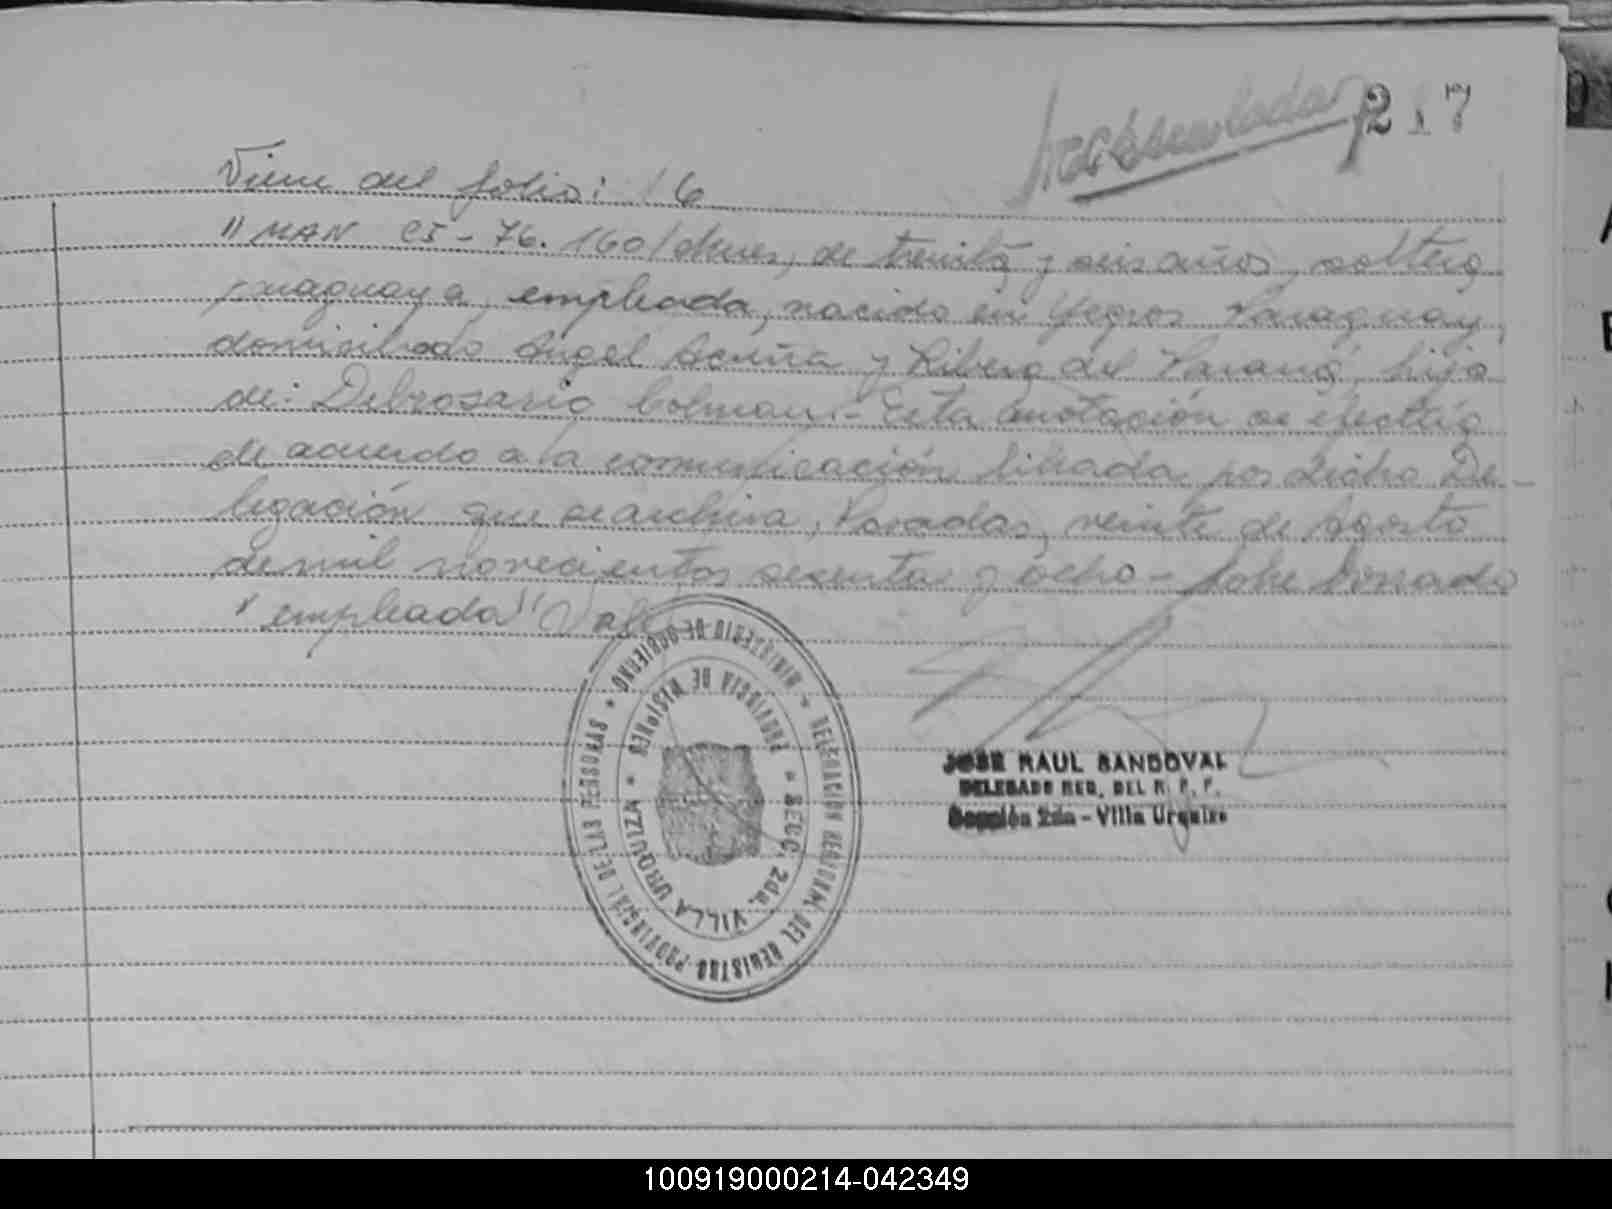 217
Viene del folio: 16
"MAN CI - 76.160/ , de treinta y seis años, soltera
paraguaya, empleada, nacida en Yegros Paraguay,
domiciliado Angel Acuña y Ribera del Paraná, hija
de: Delrosario Colman.- Esta anotación se efectúa
de acuerdo a la comunicación librada por dicha De-
legación que se archiva, Posadas, veinte de Agosto
de mil novecientos sesenta y ocho - sobre borrado
"empleada" Vale
JOSE RAUL SANDOVAL
DELEGADO REG. DEL R. P. P.
Sección 2da - Villa Urquiza
MINISTERIO DE GOBIERNO * DELEGACION REGIONAL DEL REGISTRO PROVINCIAL DE LAS PERSONAS *
PROVINCIA DE MISIONES * SECC. 2da. VILLA URQUIZA *
100919000214-042349